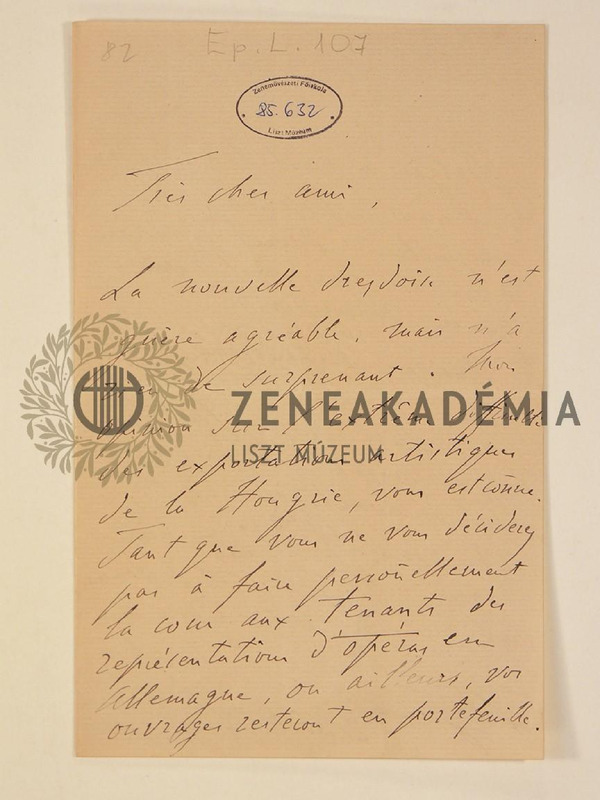 82
Ep. L. 107
Zeneművészeti Főiskola
85.632
Liszt Múzeum
Très cher ami,
La nouvelle dresdoise n'est
guère agréable, mais n'a
rien de surprenant. Mon
ZENEAKADÉMIA
opinion sur l'extrême difficulté
LISZT MÚZEUM
des exportations artistiques
de la Hongrie, vous est connue.
Tant que vous ne vous déciderez
pas à faire personellement
la cour aux tenants des
représentations d'opéras en
Allemagne, ou ailleurs, vos
ouvrages resteront en portefeuille.